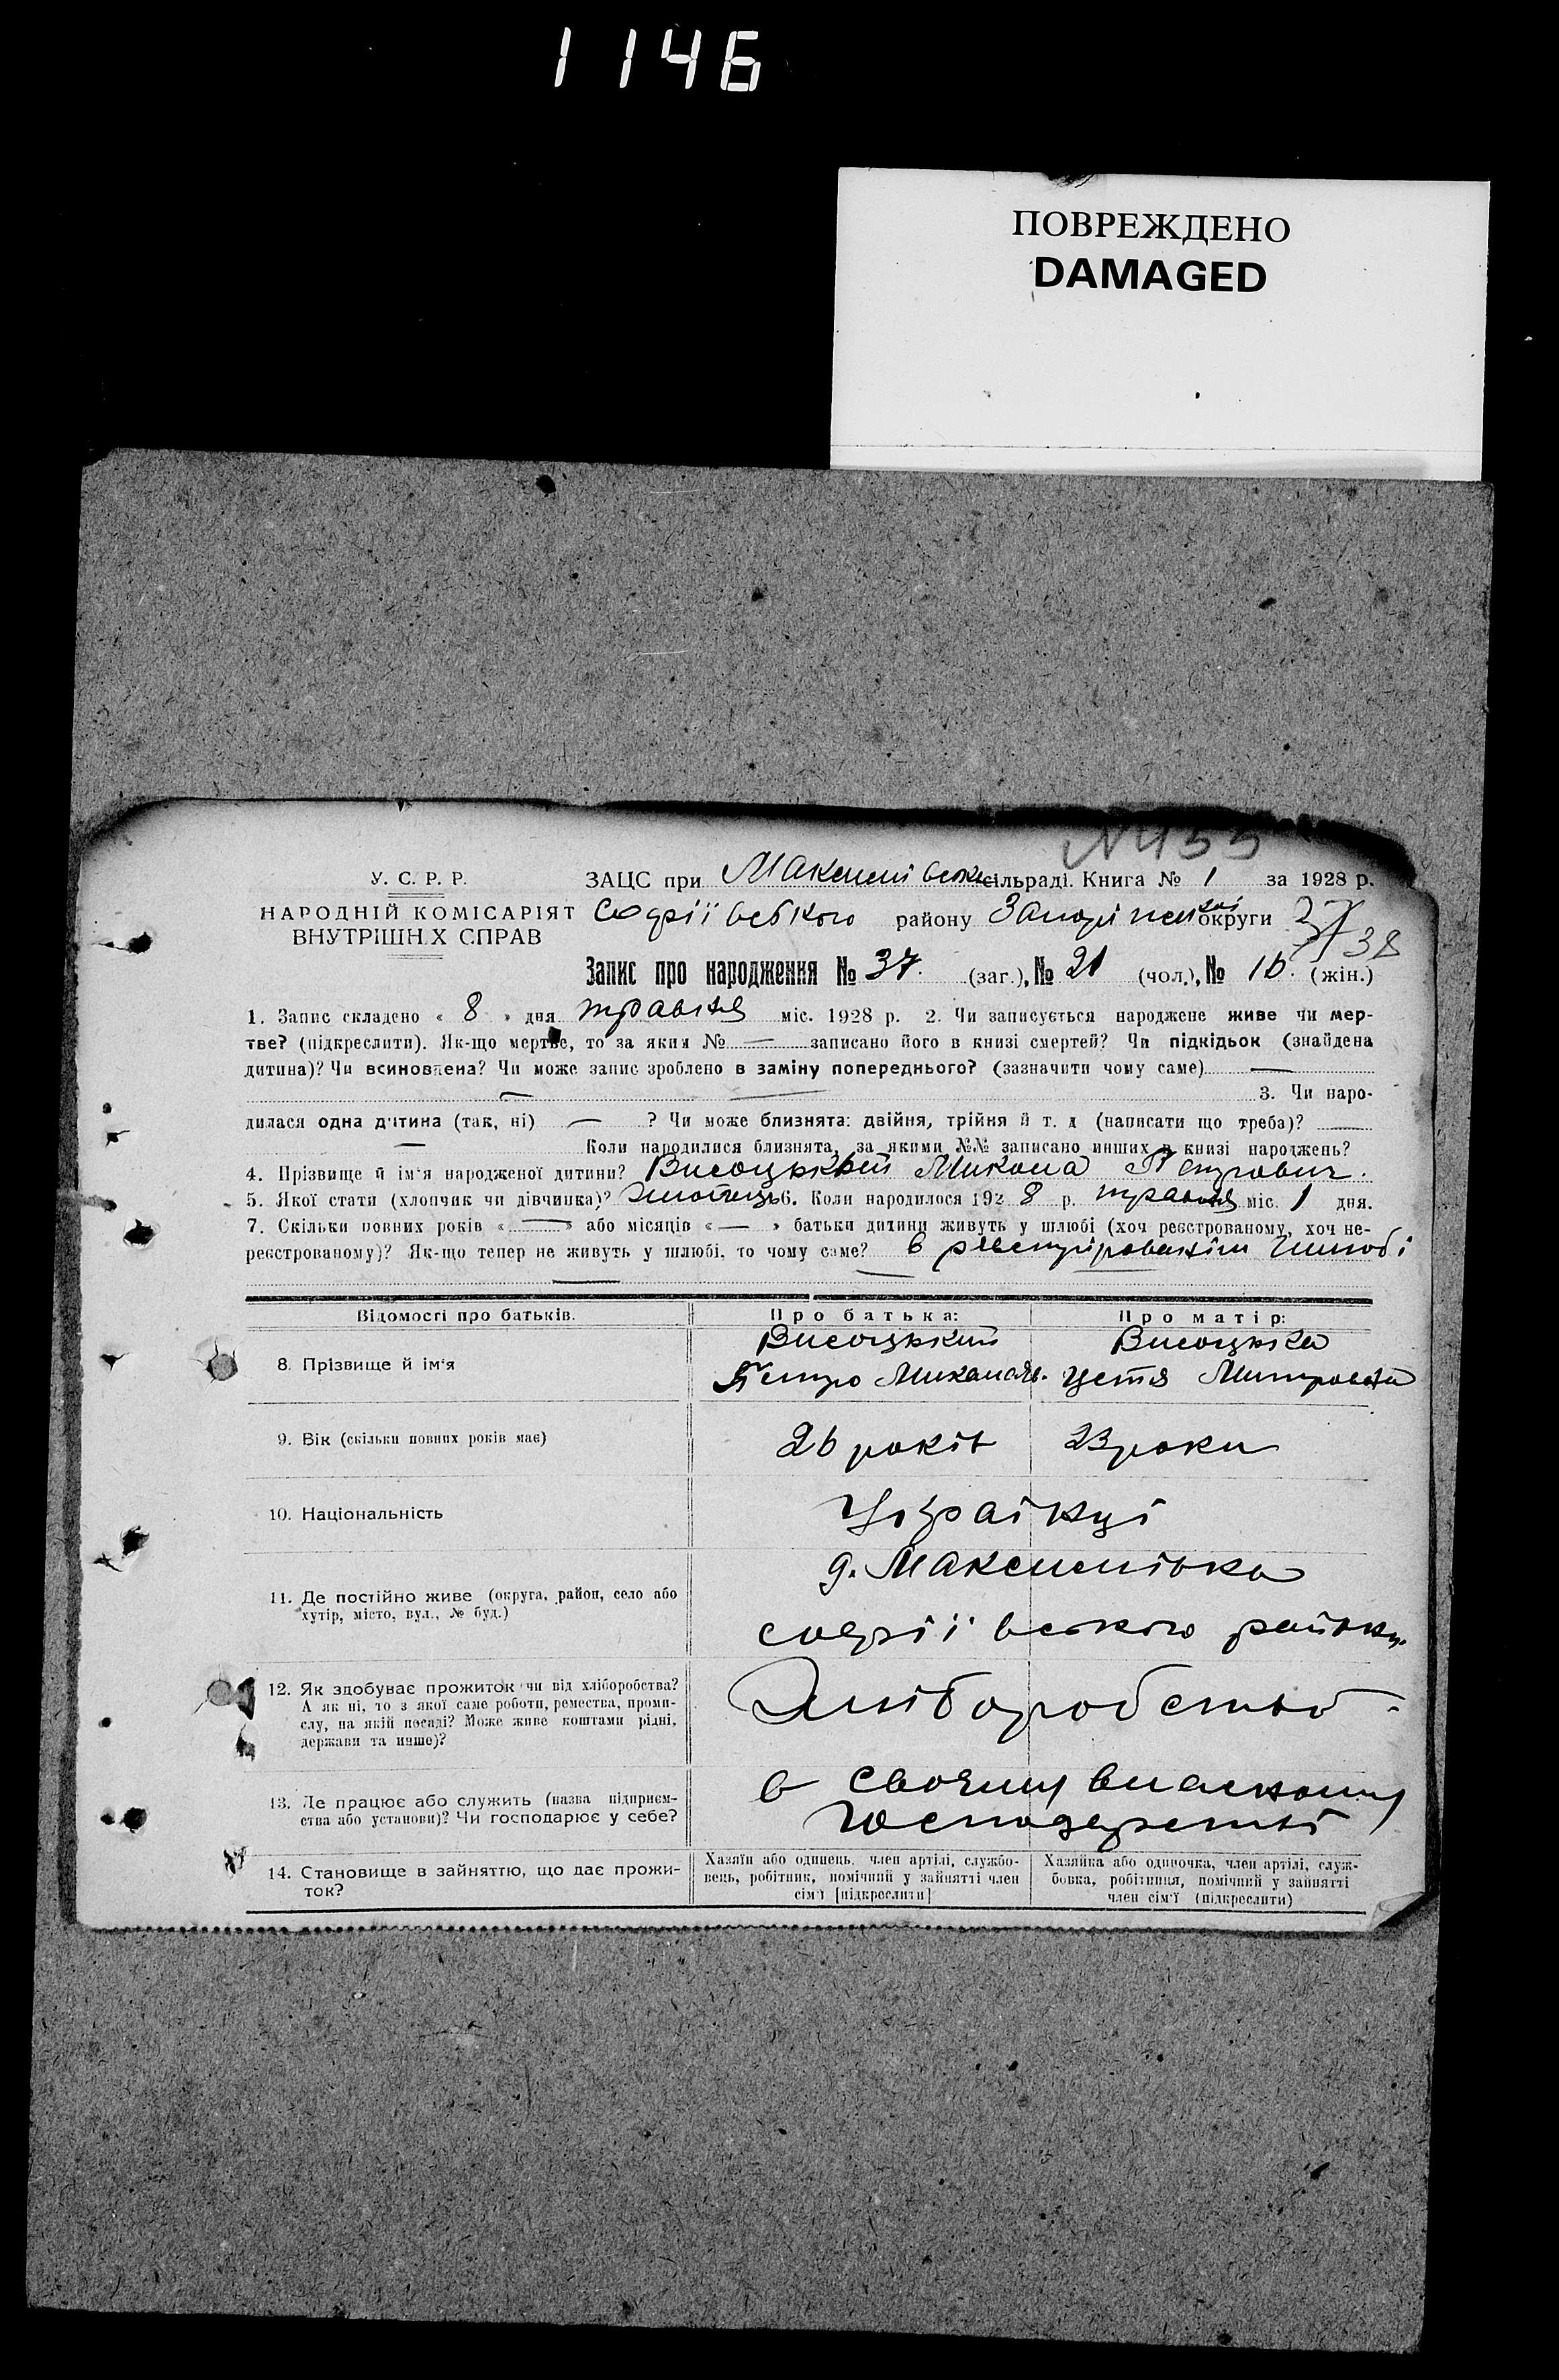 1146
ПОВРЕЖДЕНО
DAMAGED
№ 455
У. С. Р. Р.
НАРОДНІЙ КОМІСАРІЯТ
ВНУТРІШН.Х СПРАВ
ЗАЦС при Максимівській сільраді. Книга № 1 за 1928 р.
Софіївського району Запоріжської округи 37 38
Запис про народження № 37. (заг.), № 21 (чол.), № 16. (жін.)
1. Запис складено « 8 » дня травня міс. 1928 р. 2. Чи записується народжене живе чи мер-
тве? (підкреслити). Як-що мертве, то за яким № — записано його в книзі смертей? Чи підкідьок (знайдена
дитина)? Чи всиновлена? Чи може запис зроблено в заміну попереднього? (зазначити чому саме) —
— — 3. Чи наро-
дилася одна дитина (так, ні) — ? Чи може близнята: двійня, трійня й т. д (написати що треба)? —
— Коли народилися близнята, за якими №№ записано инших в книзі народжень?
4. Прізвище й ім'я народженої дитини? Висоцький Микола Петрович.
5. Якої стати (хлопчик чи дівчинка)? Хлопець 6. Коли народилося 1928 р. травня міс. 1 дня.
7. Скільки повних років « — » або місяців « — » батьки дитини живуть у шлюбі (хоч реєстрованому, хоч не-
реєстрованому)? Як-що тепер не живуть у шлюбі, то чому саме? в
Відомості про батьків.
Про батька:
Про матір:
8. Прізвище й ім'я
Висоцький
Петро Миколаєв.
Висоцька
Устя Митровна
9. Вік (скільки повних років має)
26 років
23 роки
10. Національність
Українці
11. Де постійно живе (округа, район, село або
хутір, місто, вул., № буд.)
д. Максимівка
Софіївського району
12. Як здобуває прожиток чи від хліборобства?
А як ні, то з якої саме роботи, ремества, проми-
слу, на якій посаді? Може живе коштами рідні,
держави та инше)?
Хліборобство
13. Де працює або служить (назва підприєм-
ства або установи)? Чи господарює у себе?
в своєму власному
господарстві
14. Становище в зайняттю, що дає прожи-
ток?
Хазяїн або одинець, член артілі, службо-
вець, робітник, помічний у зайнятті член
сім'ї [підкреслити]
Хазяйка або одиночка, член артілі, служ-
бовка, робітниця, помічний у зайнятті
член сім'ї (підкреслити)